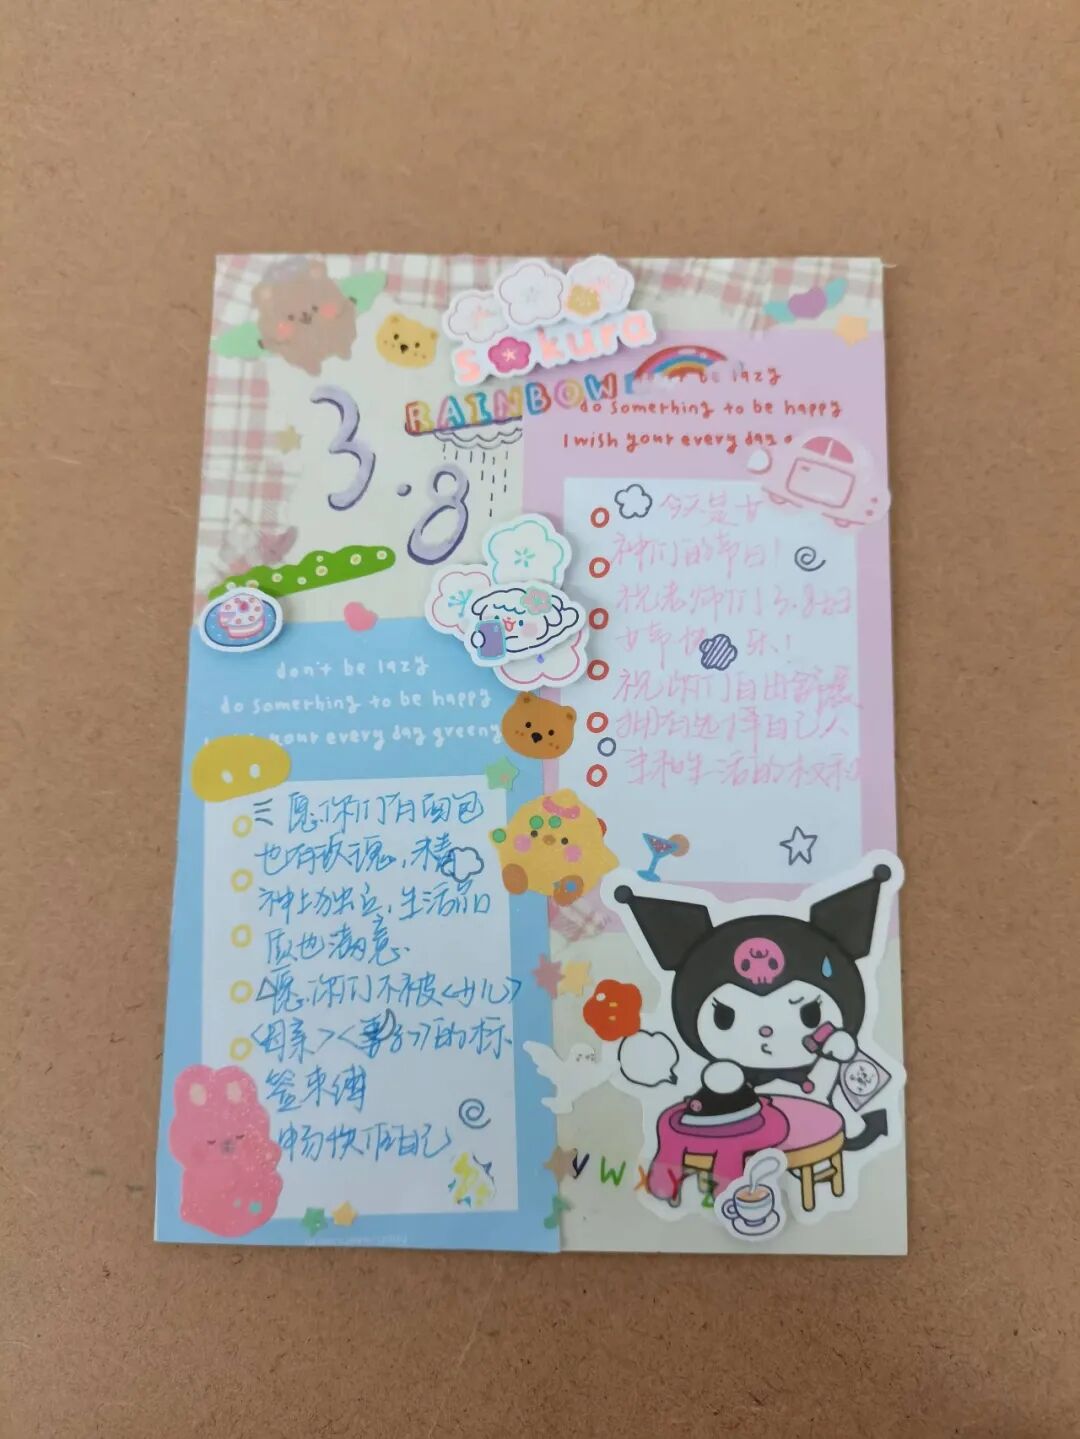 sakura
RAINBOW
be lazy
do something to be happy
I wish your every day
3.8
今天是女
神们的节日！
祝老师们3.8妇
女节快乐！
祝你们自由舒展
拥有选择自己人
生和生活的权利
don't be lazy
do something to be happy
your every day greeny
愿你们有面包
也有玫瑰，精
神上独立，生活品
质也满意
愿你们不被<女儿>
<母亲><妻子>的标
签束缚
畅快做自己
V W X Y Z